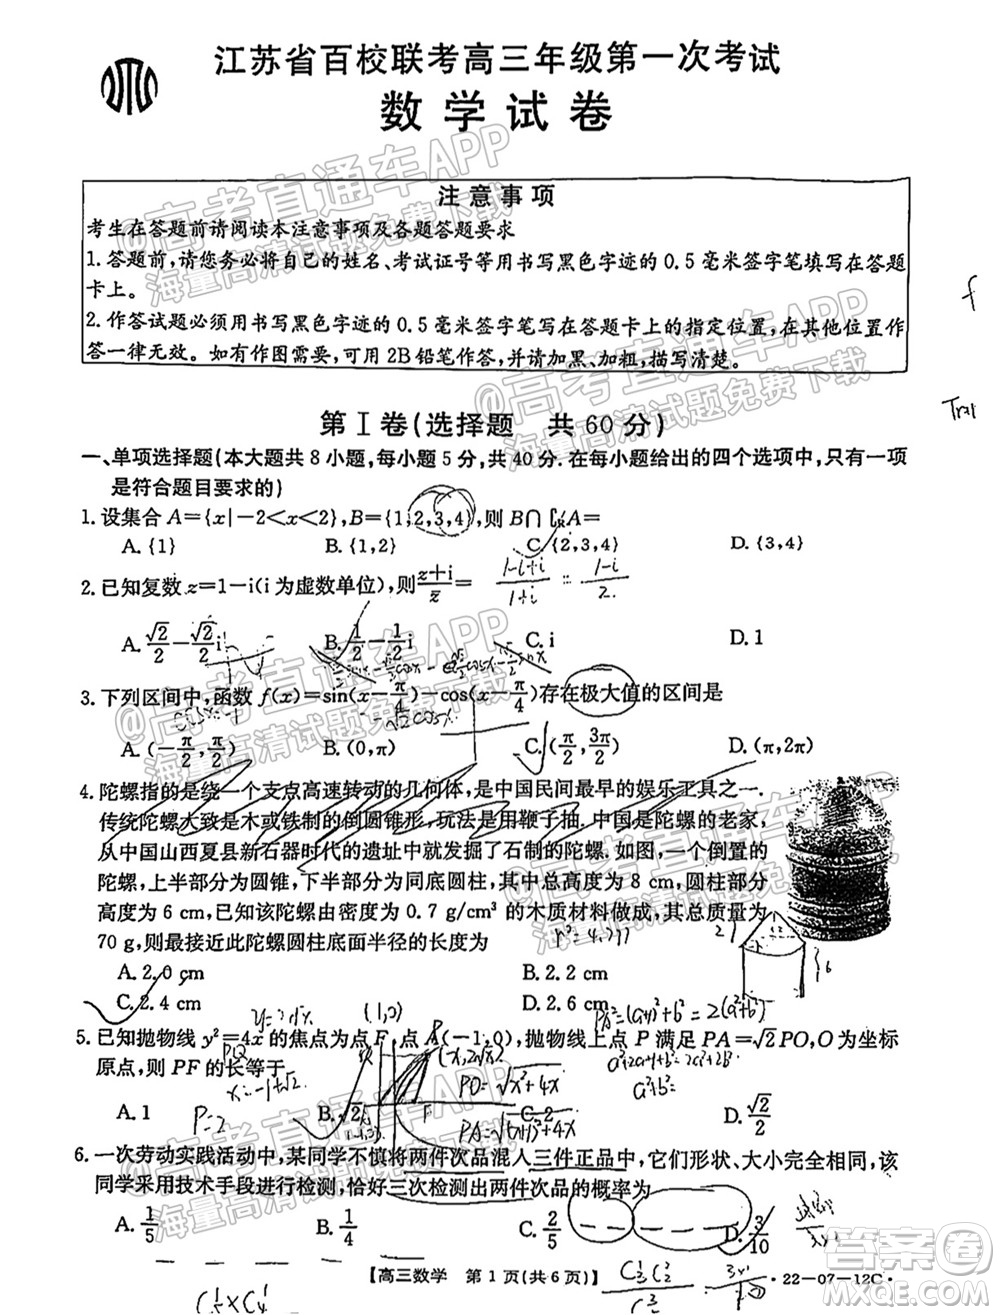 江苏省百校联考高三年级第一次考试
数 学 试 卷
注 意 事 项
考生在答题前请阅读本注意事项及各题答题要求
1. 答题前,请您务必将自己的姓名、考试证号等用书写黑色字迹的 0.5 毫米签字笔填写在答题
卡上。
2. 作答试题必须用书写黑色字迹的 0.5 毫米签字笔写在答题卡上的指定位置,在其他位置作
答一律无效。如有作图需要,可用 2B 铅笔作答,并请加黑、加粗,描写清楚。
第 I 卷(选择题 共 60 分)
一、单项选择题(本大题共 8 小题,每小题 5 分,共 40 分.在每小题给出的四个选项中,只有一项
是符合题目要求的)
1. 设集合 A={x|-2<x<2},B={1,2,3,4},则 B∩∁RA=
A. {1} B. {1,2} C. {2,3,4} D. {3,4}
2. 已知复数 z=1-i(i 为虚数单位),则(z+i)/z̄= (1-i+i)/(1+i) = (1-i)/2
A. √2/2-√2/2i B. 1/2-1/2i C. i D. 1
3. 下列区间中,函数 f(x)=sin(x-π/4)-cos(x-π/4)存在极大值的区间是
-√2cosx
A. (-π/2,π/2) B. (0,π) C. (π/2,3π/2) D. (π,2π)
4. 陀螺指的是绕一个支点高速转动的几何体,是中国民间最早的娱乐工具之一.
传统陀螺大致是木或铁制的倒圆锥形,玩法是用鞭子抽.中国是陀螺的老家,
从中国山西夏县新石器时代的遗址中就发掘了石制的陀螺.如图,一个倒置的
陀螺,上半部分为圆锥,下半部分为同底圆柱,其中总高度为 8 cm,圆柱部分
高度为 6 cm,已知该陀螺由密度为 0.7 g/cm³ 的木质材料做成,其总质量为
70 g,则最接近此陀螺圆柱底面半径的长度为
A. 2.0 cm B. 2.2 cm
C. 2.4 cm D. 2.6 cm
PA²=(a+1)²+b²=2(a²+b²)
(1,0)
5. 已知抛物线 y²=4x 的焦点为点 F,点 A(-1,0),抛物线上点 P 满足 PA=√2PO,O 为坐标
原点,则 PF 的长等于
(x,2√x)
PO=√x²+4x
PA=√(x+1)²+4x
A. 1 B. √2 C. 2 D. √2/2
6. 一次劳动实践活动中,某同学不慎将两件次品混入三件正品中,它们形状、大小完全相同,该
同学采用技术手段进行检测,恰好三次检测出两件次品的概率为
A. 1/5 B. 1/4 C. 2/5 D. 3/10
【高三数学 第 1 页(共 6 页)】 ·22-07-12C·
@高考直通车APP
海量高清试题免费下载
@高考直通车APP
海量高清试题免费下载
@高考直通车APP
海量高清试题免费下载
@高考直通车APP
海量高清试题免费下载
答案圈
MXQE.COM